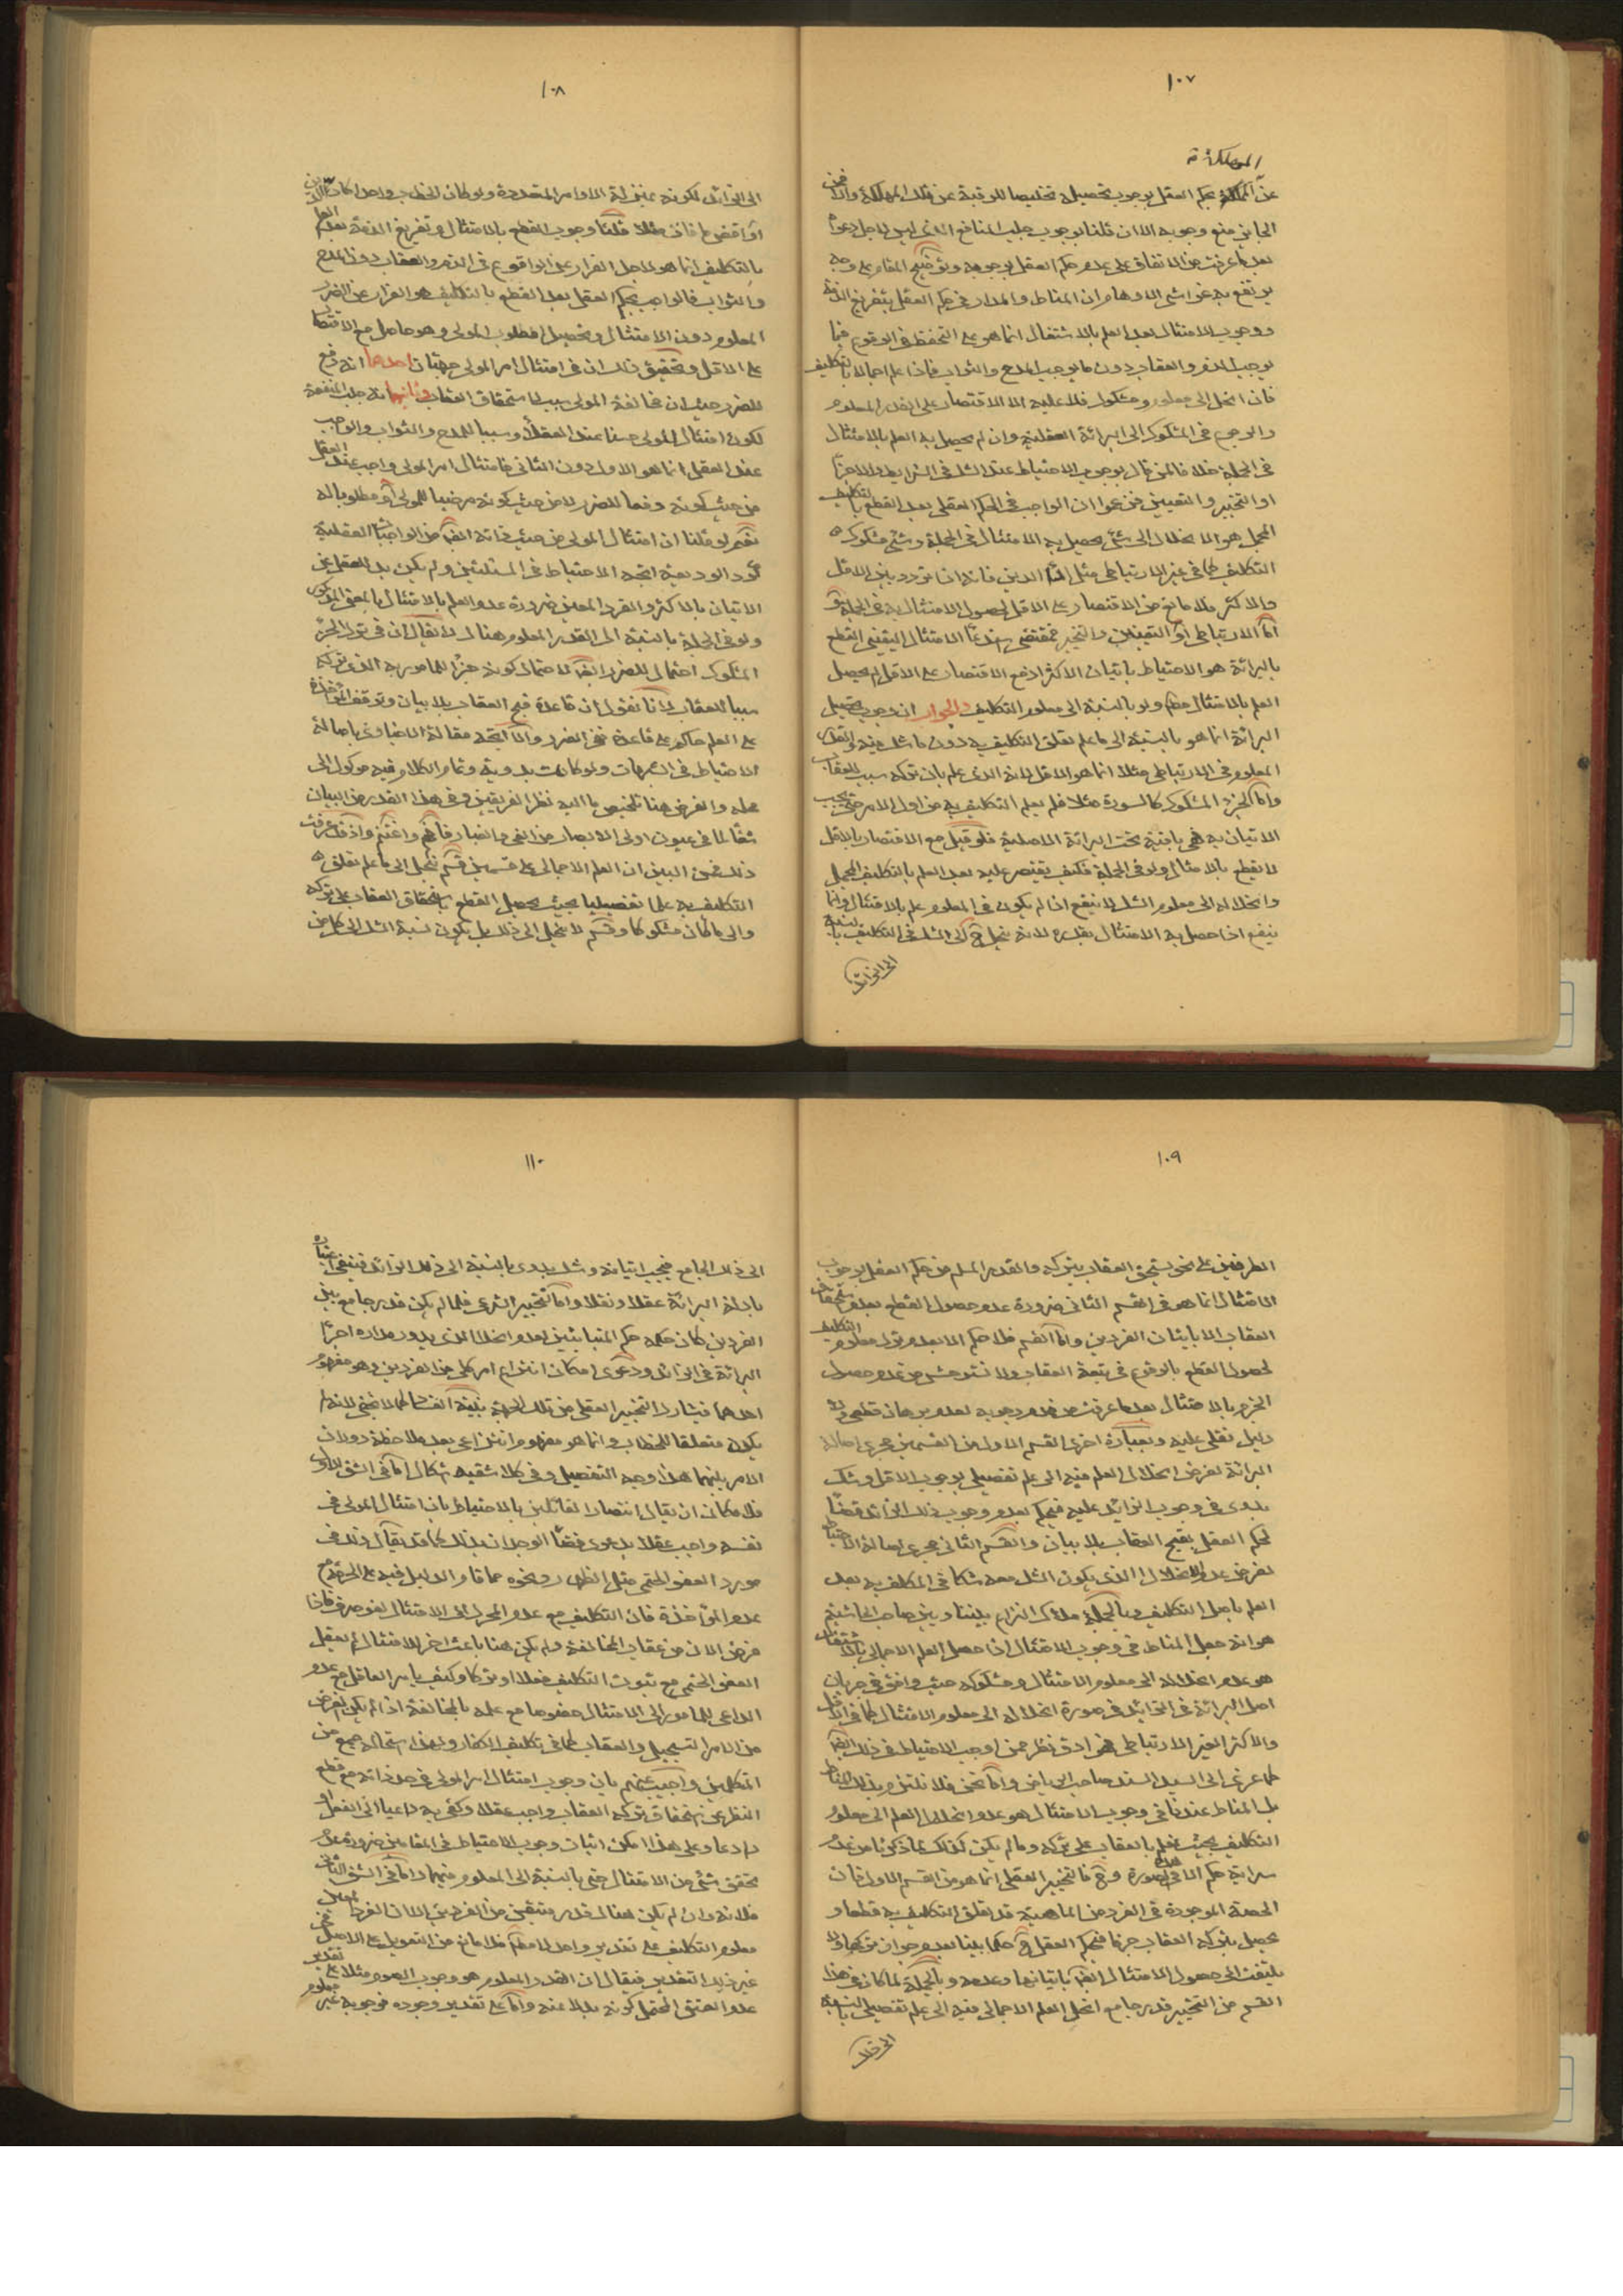 ١٠٧
المهلكة
عن المملكة بحكم العقل بوجوب تحصيله تخليصا للرقبة عن تلك المهلكة والا فمن
الجايز منع وجوبه الا ان قلنا بوجوب جلب المنافع الذي ليس لاجل دعواه
بعد ما عرفت من الاتفاق على عدم حكم العقل بوجوبه وتوضيح المقام على وجه
يرتفع به غواشى الاوهام ان المناط والمدار في حكم العقل بتفريغ الذمة
ووجوب الامتثال بعد العلم بالاشتغال انما هو على التحفظ من الوقوع فيما
يوجب الذم والعقاب دون ما يوجب المدح والثواب فاذا علم اجمالا بالتكليف
فان انحل الى معلوم ومشكوك فلا عليه الا الاقتصار على القدر المعلوم
والرجوع في المشكوك الى البرائة العقلية وان لم يحصل به العلم بالامتثال
في الجملة خلافا لمن قال بوجوب الاحتياط عند الشك في الشرايط والاجزاء
او التخيير والتعيين فزعموا ان الواجب في الحكم العقلى بعد القطع بالتكليف
المجمل هو الانحلال الى شئ يحصل به الامتثال في الجملة وشئ مشكوك
التكليف كما في غير الارتباطى مثل الدين فانه اذا تردد بين الاقل
والاكثر فلا مانع من الاقتصار على الاقل لحصول الامتثال به في الجملة
اما الارتباطى او التعيين والتخيير فمقتضى استدعاء الامتثال اليقينى القطع
بالبرائة هو الاحتياط باتيان الاكثر اذ مع الاقتصار على الاقل لم يحصل
العلم بالامتثال ولو بالنسبة الى معلوم التكليف والجواب ان وجوب تحصيل
البرائة انما هو بالنسبة الى ما علم تعلق التكليف به دون ما شك فيه والقدر
المعلوم في الارتباطى مثلا انما هو الاقل لانه الذي علم بان تركه سبب للعقاب
واما الجزء المشكوك كالسورة مثلا فلم يعلم التكليف به من اول الامر حتى يجب
الاتيان به فهى باقية تحت البرائة الاصلية فلو قيل مع الاقتصار بالاقل
لا نقطع بالامتثال ولو في الجملة فكيف يقتصر عليه بعد العلم بالتكليف المجمل
وانحلاله الى معلوم الشك لا ينفع اذا لم يكون في المعلوم علم بالامتثال وانما
ينفع اذا حصل به الامتثال بقدره لانه ينحل الى الشك في التكليف بالنسبة
الى الزائد
١٠٨
الى الزائد لكونه بمنزلة الاوامر المتعددة ولو كان الخطاب واحدا كان الدين
او اقض ما فات مثلا قلنا وجوب القطع بالامتثال وتفريغ الذمة بعد العلم
بالتكليف انما هو لاجل الفرار عن الوقوع في الذم والعقاب دون المدح
والثواب فالواجب بحكم العقل بعد القطع بالتكليف هو الفرار عن الضرر
المعلوم دون الامتثال وتحصيل مطلوب المولى وهو حاصل مع الاقتصار
على الاقل وتحقيق ذلك ان في امتثال امر المولى جهتان احدهما انه دفع
للضرر حيث ان مخالفة المولى سبب لاستحقاق العقاب وثانيهما انه جلب المنفعة
لكون امتثال المولى حسنا عند العقلاء وسببا للمدح والثواب والواجب
عند العقل انما هو الاول دون الثانى فامتثال امر المولى واجب عند العقل
من حيث كونه دفعا للضرر لا من حيث كونه مرضيا للمولى او مطلوبا له
نعم لو قلنا ان امتثال المولى من حيث ذاته ايضا من الواجبات العقلية
كرد الوديعة اتجه الاحتياط في المسئلتين ولم يكن بد للعقل عن
الاتيان بالاكثر والفرد المعين ضرورة عدم العلم بالامتثال بالمعنى المذكور
ولو في الجملة بالنسبة الى القدر المعلوم هناك لا يقال ان في ترك الجزء
المشكوك احتمال للضرر ايضا لاحتمال كونه جزء للمامور به الذي تركه
سببا للعقاب لانا نقول ان قاعدة قبح العقاب بلا بيان وتوقف المؤاخذة
على العلم حاكم على قاعدة نفى الضرر والا اتجه مقالة الاخبارى باصالة
الاحتياط في الشبهات ولو كانت بدوية وتمام الكلام فيه موكول الى
محله والغرض هنا تلخيص ما اليه نظر الفريقين وفي هذا القدر من البيان
شفاء لما في عيون اولى الابصار من العمى والغبار فافهم واغتنم واذ قد عرفت
ذلك فمن البين ان العلم الاجمالى على قسمين قسم ينحل الى ما علم تعلق
التكليف به علما تفصيليا بحيث يحصل القطع باستحقاق العقاب على تركه
والى ما كان مشكوكا وقسم لا ينحل الى ذلك بل يكون نسبة الشك الى كل من
١٠٩
الطرفين على نحو يستحق العقاب بتركه والقدر المسلم من حكم العقل بوجوب
الامتثال انما هو في القسم الثانى ضرورة عدم حصول القطع بعدم استحقاق
العقاب الا باتيان الفردين واما القسم فلا حكم الا بعدم ترك معلوم التكليف
لحصول القطع بالوقوع في تبعة العقاب ولا نستوحش من عدم حصول
الجزم بالامتثال بعد ما عرفت من عدم وجوبه لعدم برهان قطعى ولا
دليل نقلى عليه وبعبارة اخرى القسم الاول من القسمين مجرى اصالة
البرائة لفرض انحلال العلم فيه الى علم تفصيلى بوجوب الاقل وشك
بدوى في وجوب الزائد عليه فيحكم بعدم وجوب ذلك الزائد قضاء
لحكم العقل بقبح العقاب بلا بيان والقسم الثانى مجرى اصالة الاحتياط
لفرض عدم الانحلال الذي يكون الشك معه شكا في المكلف به بعد
العلم باصل التكليف وبالجملة ملاك النزاع بيننا وبين صاحب الحاشية
هو انه جعل المناط في وجوب الامتثال اذا حصل العلم الاجمالى بالاشتغال
هو عدم انحلاله الى معلوم الامتثال ومشكوكه حيث وافق في جريان
اصل البرائة في الزائد في صورة انحلاله الى معلوم الامتثال كما في الاقل
والاكثر الغير الارتباطى فهو ادق نظر ممن اوجب الاحتياط في ذلك ايضا
كما عزى الى السيد السند صاحب الرياض واما نحن فلا نلتزم بذلك المناط
بل المناط عندنا في وجوب الامتثال هو عدم انحلال العلم الى معلوم
التكليف بحيث نعلم بالعقاب على تركه وما لم يكن كذلك لما ذكرنا من عدم
سراية حكم الا في صورة وح فالتخيير العقلى انما هو من القسم الاول فان
الحصة الموجودة في الفرد من الماهية قد تعلق التكليف به قطعا و
يحصل بتركه العقاب جزما فيحكم العقل ح حكما بتيا بعدم جواز تركها ولا
يلتفت الى حصول الامتثال ايضا باتيانها وعدمه وبالجملة لما كان في هذا
القسم من التخيير قدر جامع انحل العلم الاجمالى فيه الى علم تفصيلى بالنسبة
الى ذلك
١١٠
الى ذلك الجامع فيجب اتيانه وشك بدوى بالنسبة الى ذلك الزائد فينفى اعتباره
بادلة البرائة عقلا ونقلا واما التخيير الشرعى فلما لم يكن قدر جامع بين
الفردين كان حكمه حكم المتباينين لعدم انحلال الذي يدور مداره اجراء
البرائة في الزائد ودعوى امكان انتزاع امر كلى من الفردين وهو مفهوم
احدهما فيشارك التخيير العقلى من تلك الجهة بينة الفساد كما لا يخفى لانه لم
يكن متعلقا للخطاب وانما هو مفهوم انتزاعى بعد ملاحظة دوران
الامر بينهما هذا وجه التفصيل وفي كلا شقيه اشكال اما في الشق الاول
فلامكان ان يقال انتصارا لقائلين بالاحتياط بان امتثال المولى في
نفسه واجب عقلا بدعوى قضاء الوجدان بذلك كما قد يقال ذلك في
مورد العفو الحتمى مثل الظهار ونحوه مما قام الدليل فيه على الحرمة مع
عدم المؤاخذة فان التكليف مع عدم المحرك الى الامتثال لغو صرف فاذا
فرض الامن من عقاب المخالفة ولم يكن هنا باعث اخر للامتثال لم يعقل
العفو الحتمى مع ثبوت التكليف فعلا او تركا وكيف يامر العاقل مع عدم
الداعى للمامور الى الامتثال خصوصا مع علمه بالمخالفة اذا لم يكن الغرض
من الامر التسجيل والعقاب كما في تكليف الكفار ولهذا استحاله جمع من
المتكلمين واجيب عنهم بان وجوب امتثال امر المولى في حد ذاته مع قطع
النظر عن استحقاق تركه العقاب واجب عقلا وكفى به داعيا الى الفعل او
رادعا وعلى هذا امكن اثبات وجوب الاحتياط في المقامين ضرورة عدم
تحقق شئ من الامتثال حتى بالنسبة الى المعلوم فيهما واما في الشق الثانى
فلانه وان لم يكن هناك قدر متيقن من الفردين الا ان الفرد
معلوم التكليف على تقدير واحد لا مطلقا فلا مانع من التعويل على الاصل في
غير ذلك التقدير فيقال ان القدر المعلوم هو وجوب الصوم مثلا على تقدير
عدم العتق المحتمل كونه بدلا عنه واما على تقدير وجوده فوجوبه غير معلوم